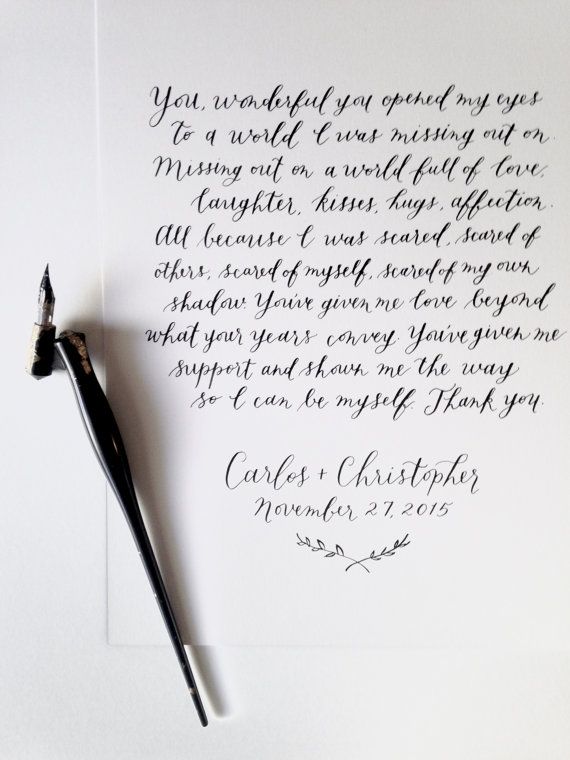 You, wonderful you opened my eyes
to a world I was missing out on.
Missing out on a world full of love,
laughter, kisses, hugs, affection.
All because I was scared, scared of
others, scared of myself, scared of my own
shadow. You've given me love beyond
what your years convey. You've given me
support and shown me the way
so I can be myself. Thank you.
Carlos + Christopher
November 27, 2015